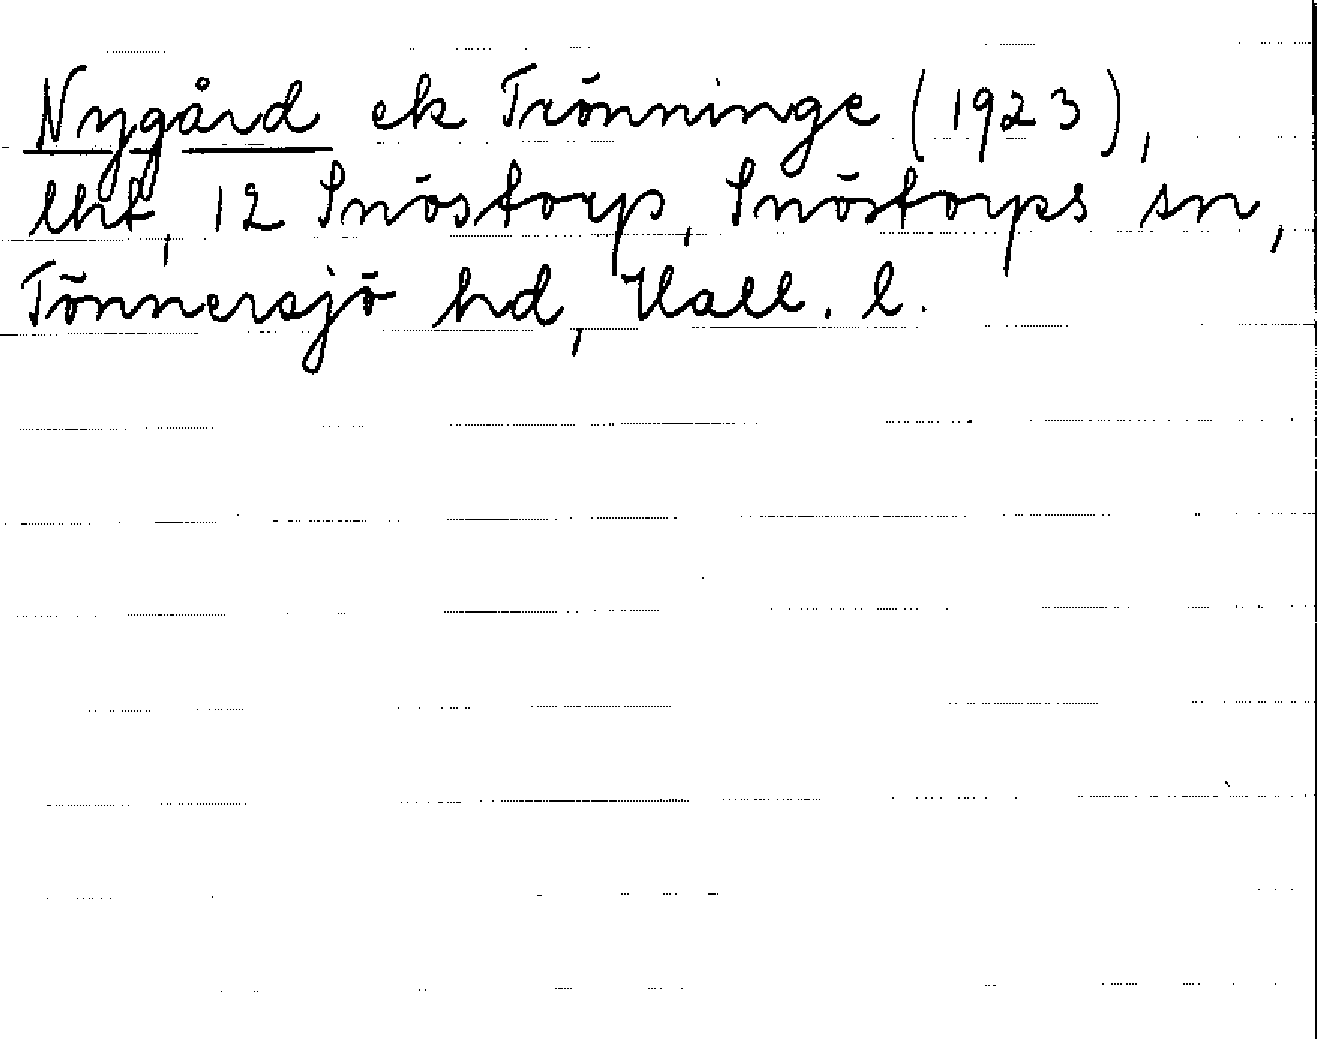 Nygård ek Trönninge (1923),
lht, 12 Snöstorp, Snöstorps sn,
Tönnersjö hd, Hall. l.